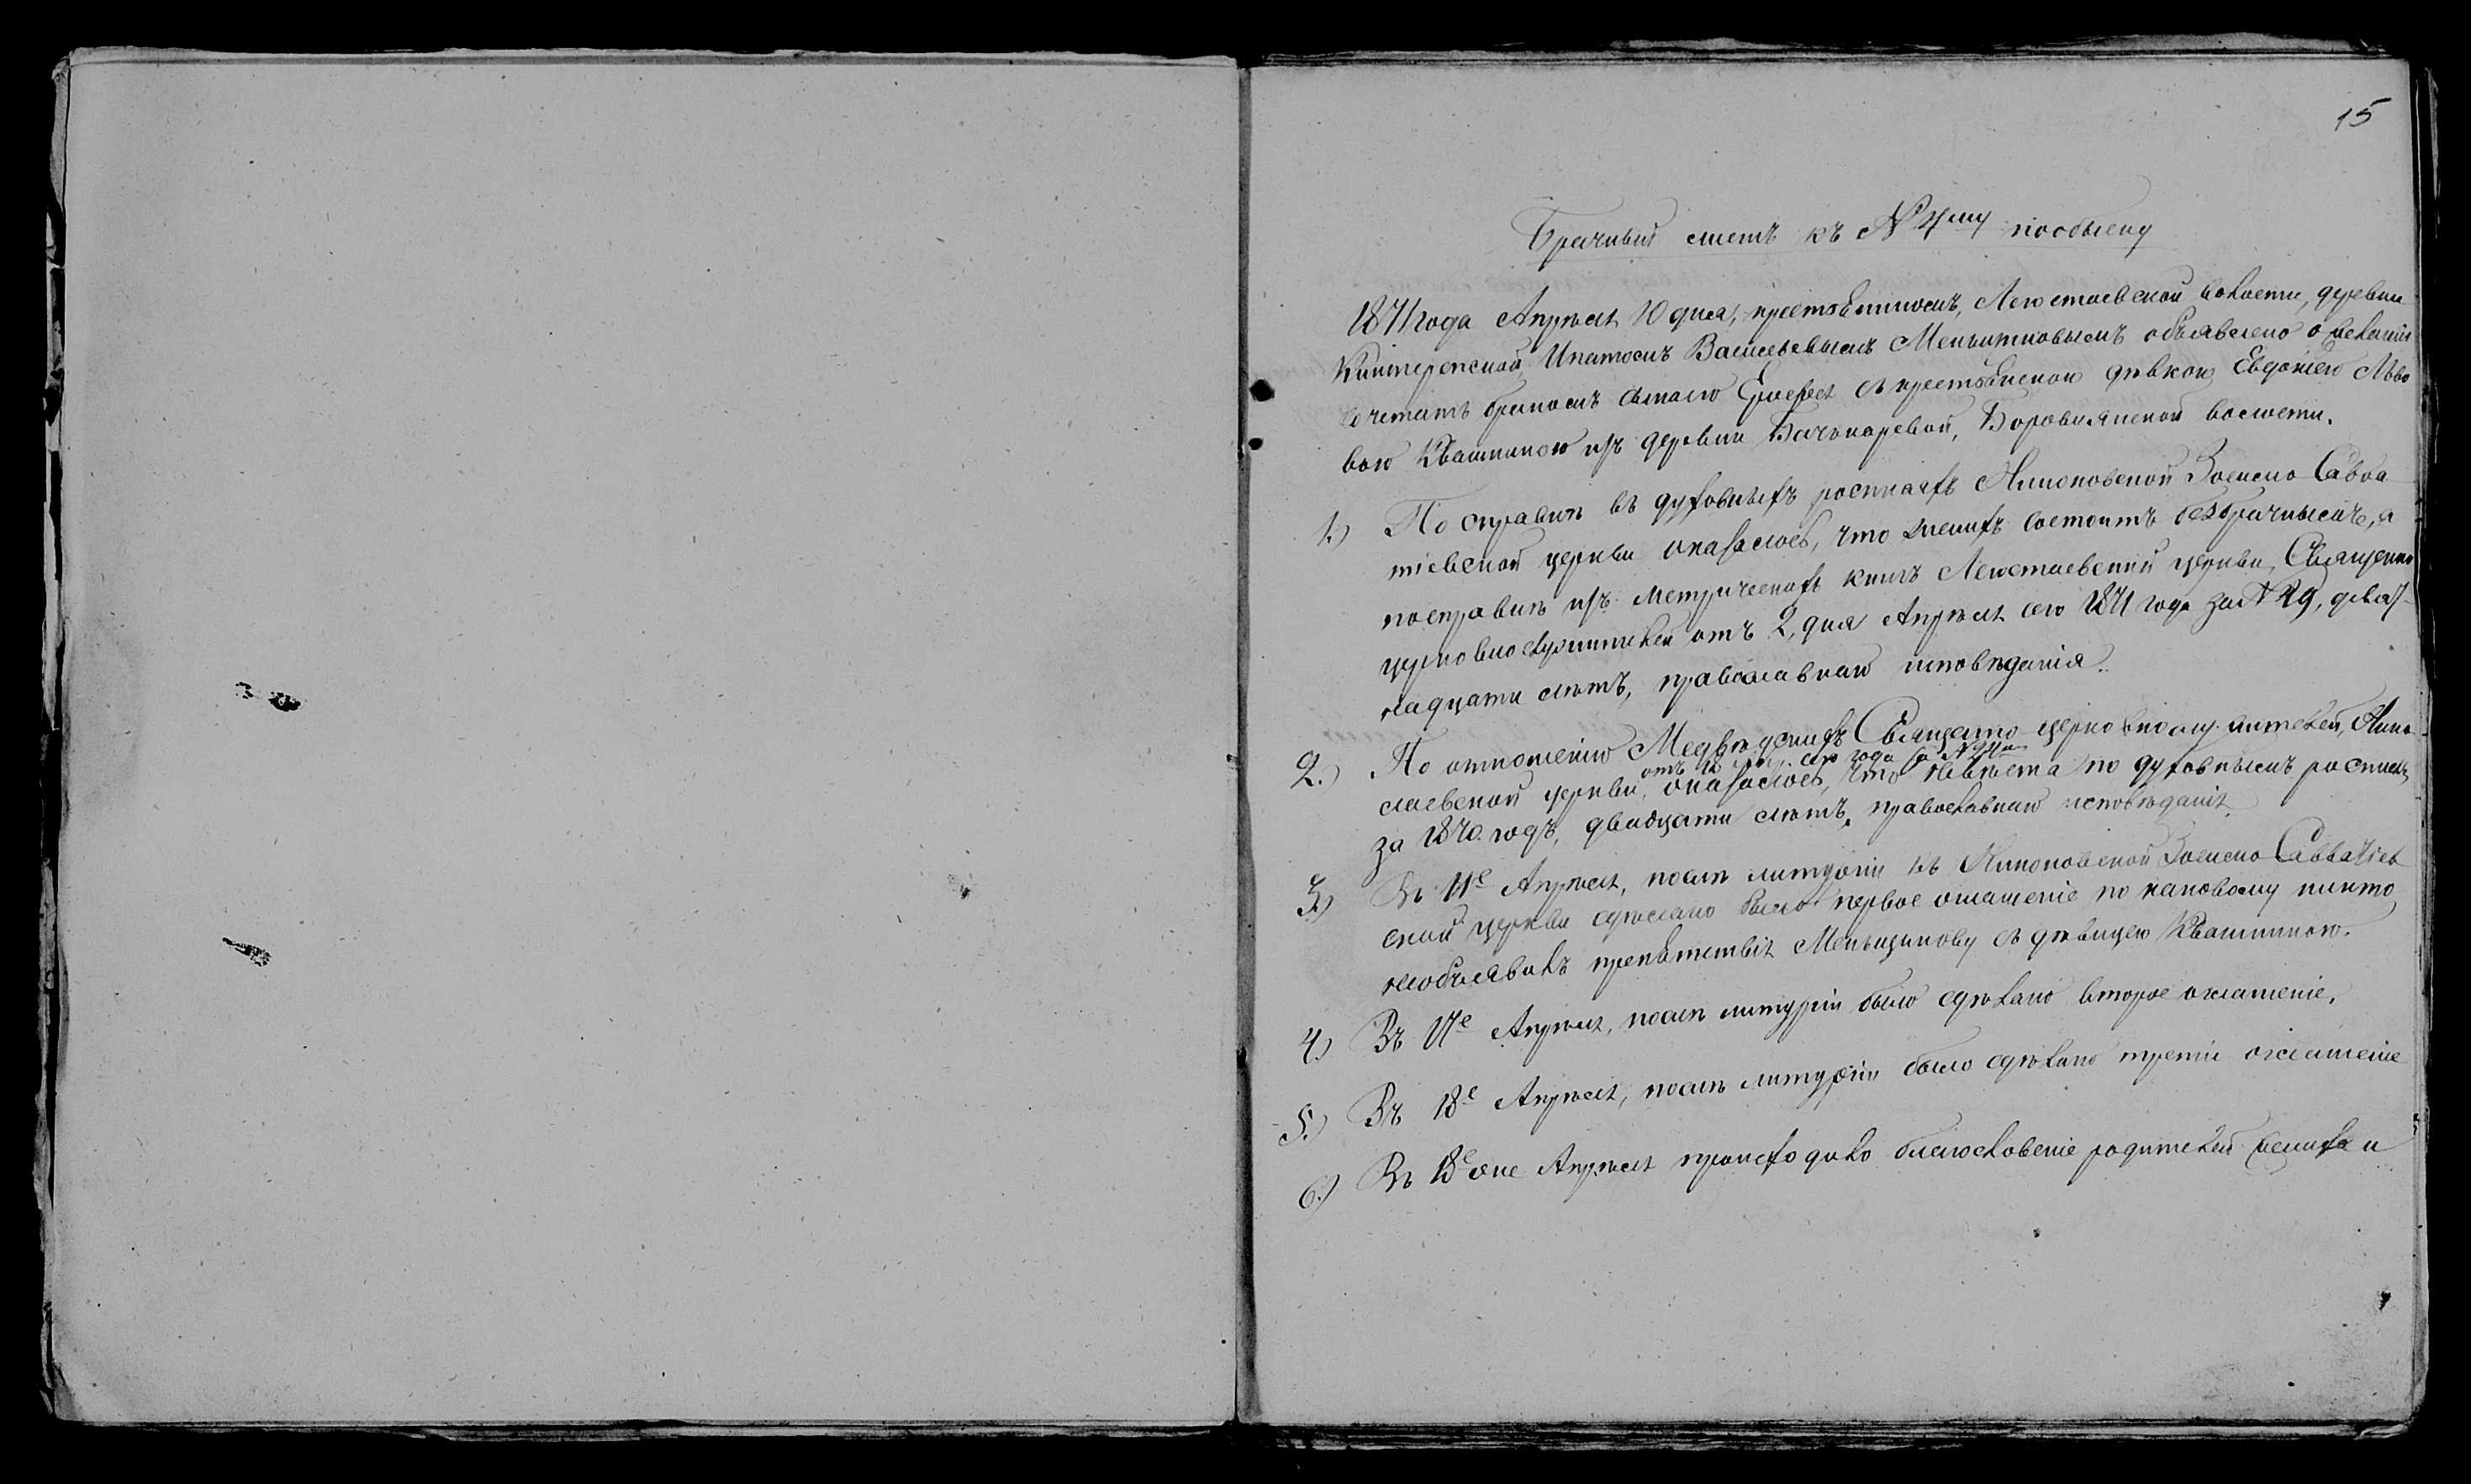 15
Брачный листъ къ № 4му пообыску
1871 года Апрѣля 10 дня, крестьяниномъ, Легостаевской волости, деревни
Китерепской Ипатомъ Васильевымъ Меньшиковымъ объявлено о желаніи
сочетать бракомъ съ крестьянскою дѣвкою Евдокіею Льво
вою Квашниною изъ деревни Бачкаревой, Боровлянской волости.
1.) По справкѣ въ духовныхъ росписяхъ Никоновской Зосимо-Савва
тіевской церкви оказалось, что женихъ состоитъ безбрачнымъ, а
посправкѣ изъ метрическихъ книгъ Легостаевской церкви, Священно
церковнослужителей отъ 2, дня Апрѣля сего 1871 года за № 29, девят-
надцати лѣтъ, православнаго исповѣданія.
2.) По отношенію Медвѣдскихъ Священно церковнослужителей, Нико
лаевской церкви, отъ сего года за № оказалось, что невѣста по духовнымъ росписямъ
за 1870 годъ, двадцати лѣтъ, православнаго исповѣданія
3.) Въ 11е Апрѣля, послѣ литургіи въ Никоновской Зосимо-Савватіев
ской церкви сдѣлано было первое оглашеніе по каковому никто
необъявилъ препятствія Меньщикову съ дѣвицею Квашниною.
4.) Въ 17е Апрѣля, послѣ литургіи было сдѣлано второе оглашеніе.
5.) Въ 18е Апрѣля, послѣ литургіи было сдѣлано третіе оглашеніе
6.) Въ 18е Апрѣля происходило благословеніе родителей жениха и